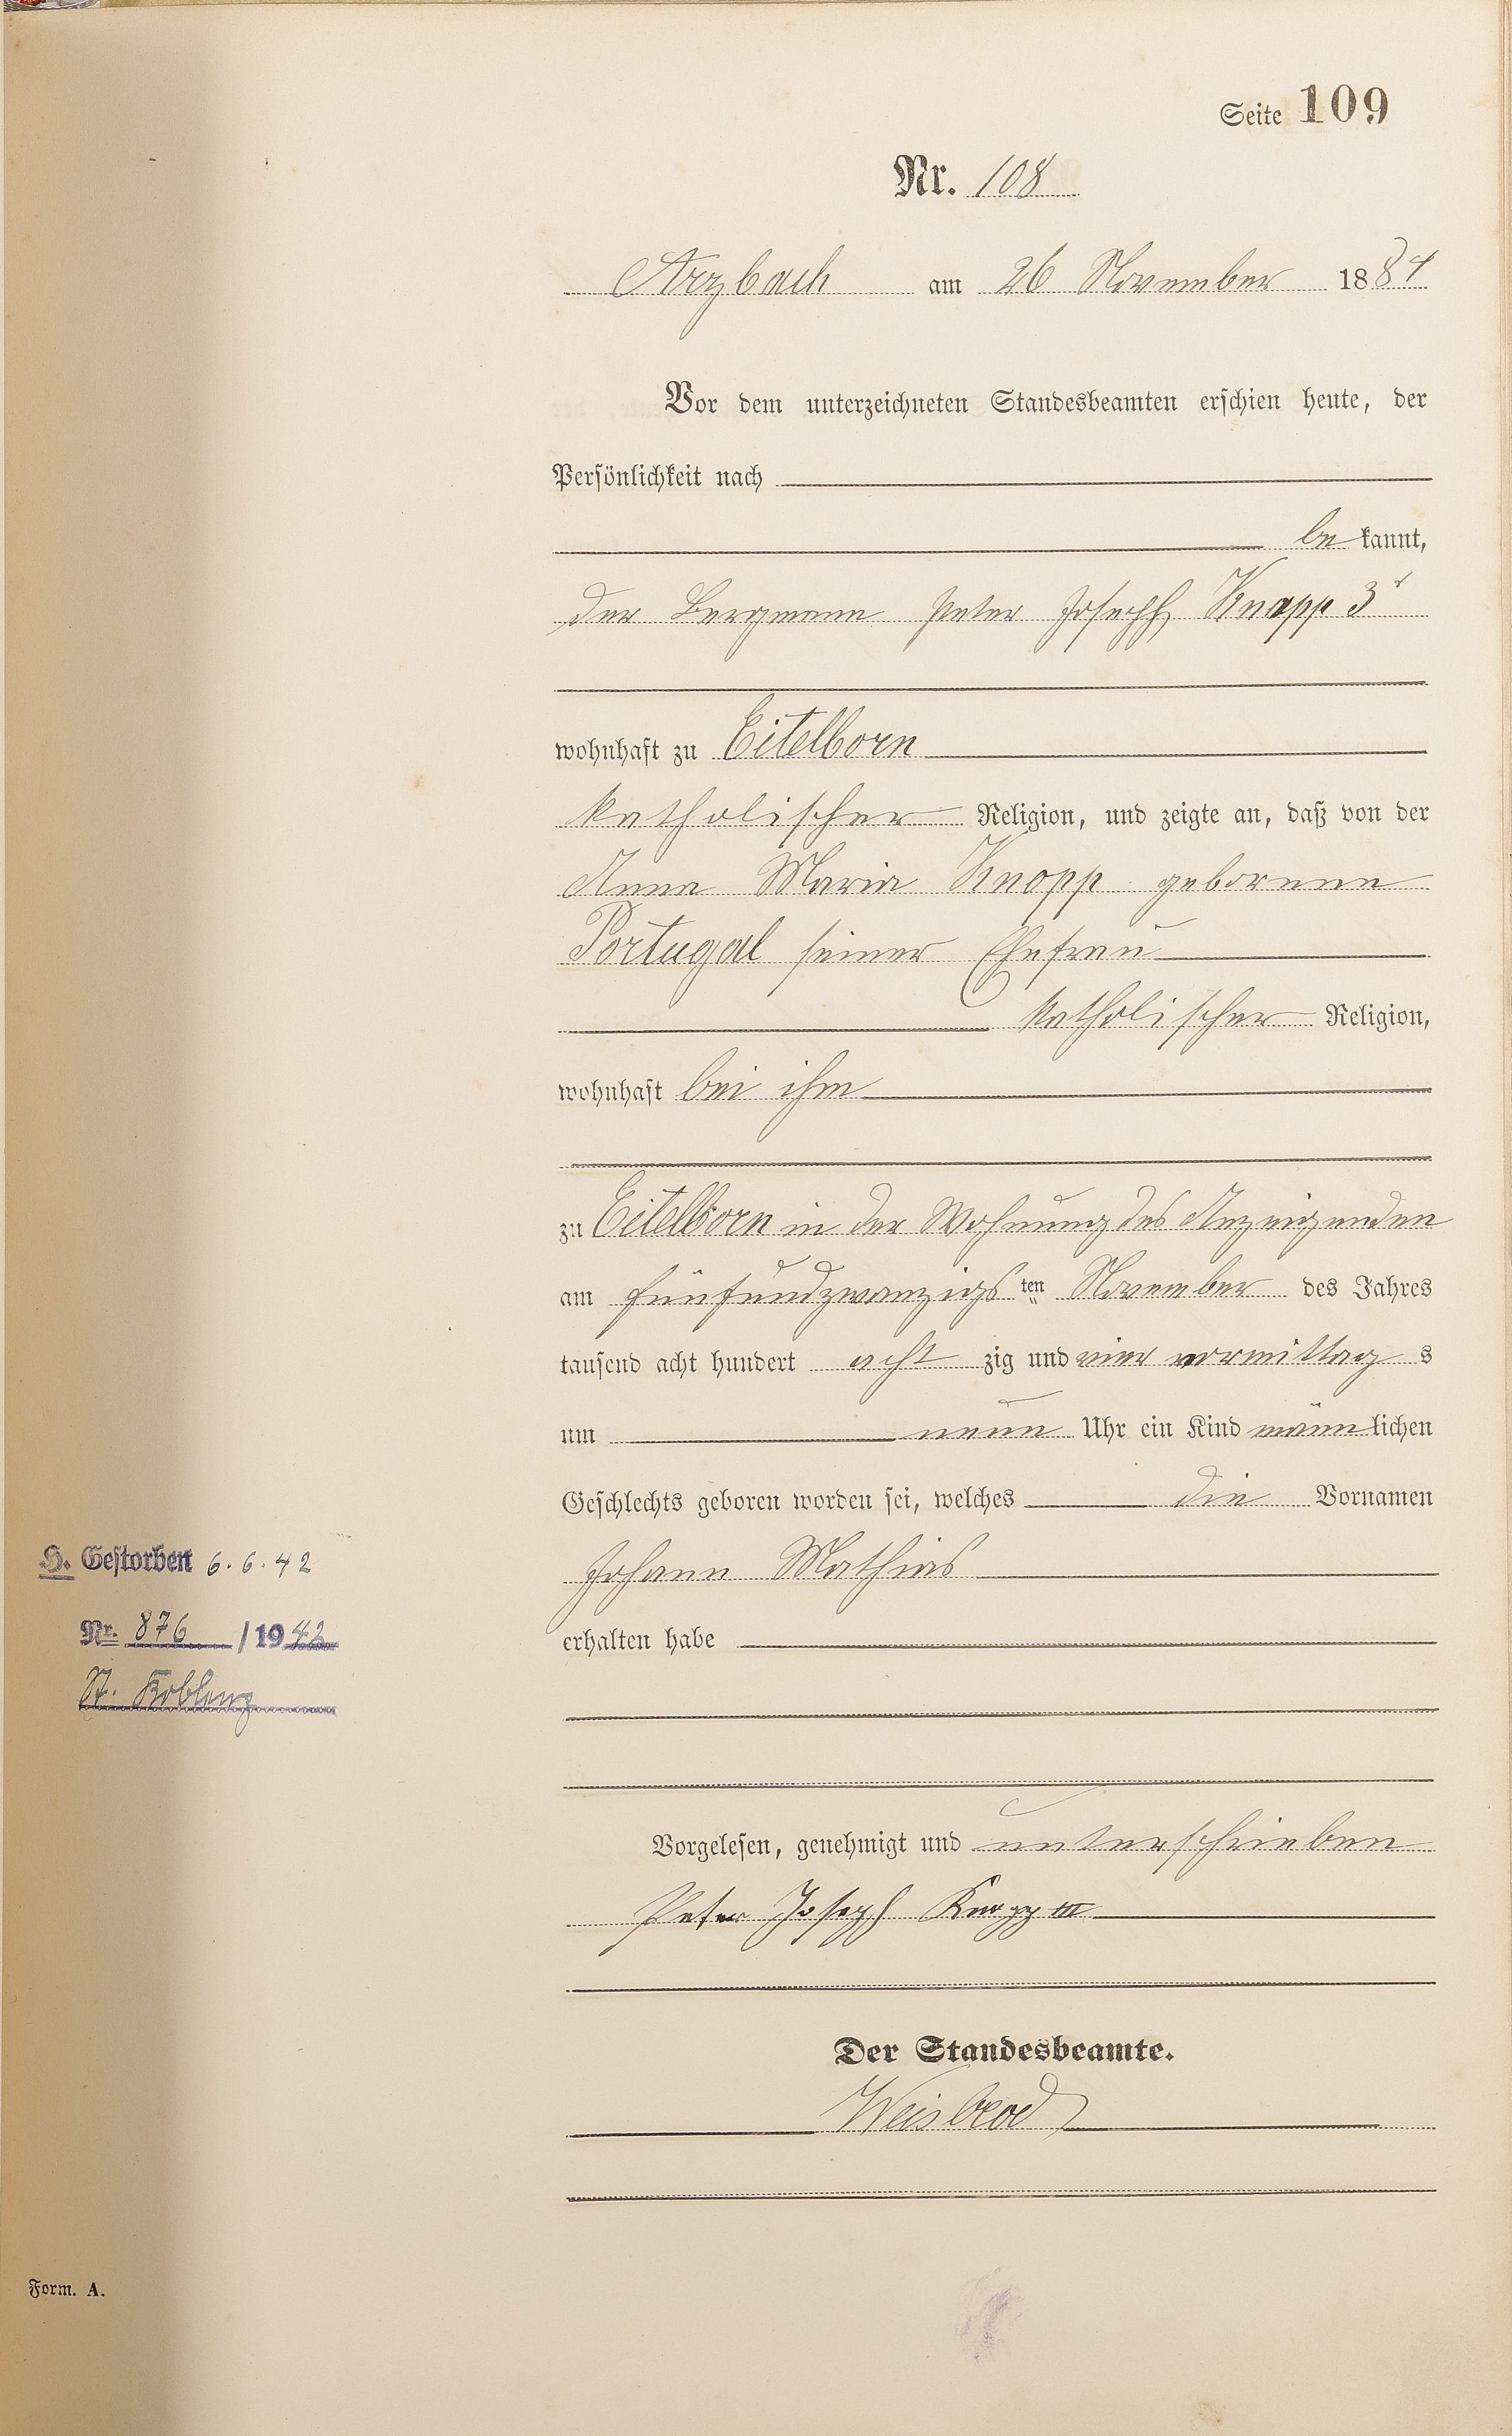 Seite 109
Nr. 108
Arzbach am 26 November 1884
Vor dem unterzeichneten Standesbeamten erschien heute, der
Persönlichkeit nach
be kannt,
der Bergmann Peter Joseph Knopp 3r
wohnhaft zu Eitelborn
katholischer Religion, und zeigte an, daß von der
Anna Maria Knopp geborenen
Portugal seiner Ehefrau
katholischer Religion,
wohnhaft bei ihm
zu Eitelborn in der Wohnung des Anzeigenden
am fünfundzwanzigs ten November des Jahres
tausend acht hundert acht zig und vier vormittag s
um neun Uhr ein Kind männ lichen
Geschlechts geboren worden sei, welches die Vornamen
Johann Mathias
erhalten habe
H. Gestorben 6.6.42
Nr. 876 /1942
St. Koblenz
Vorgelesen, genehmigt und unterschrieben
Peter Joseph Knopp III
Der Standesbeamte.
Weisbrod
Form. A.